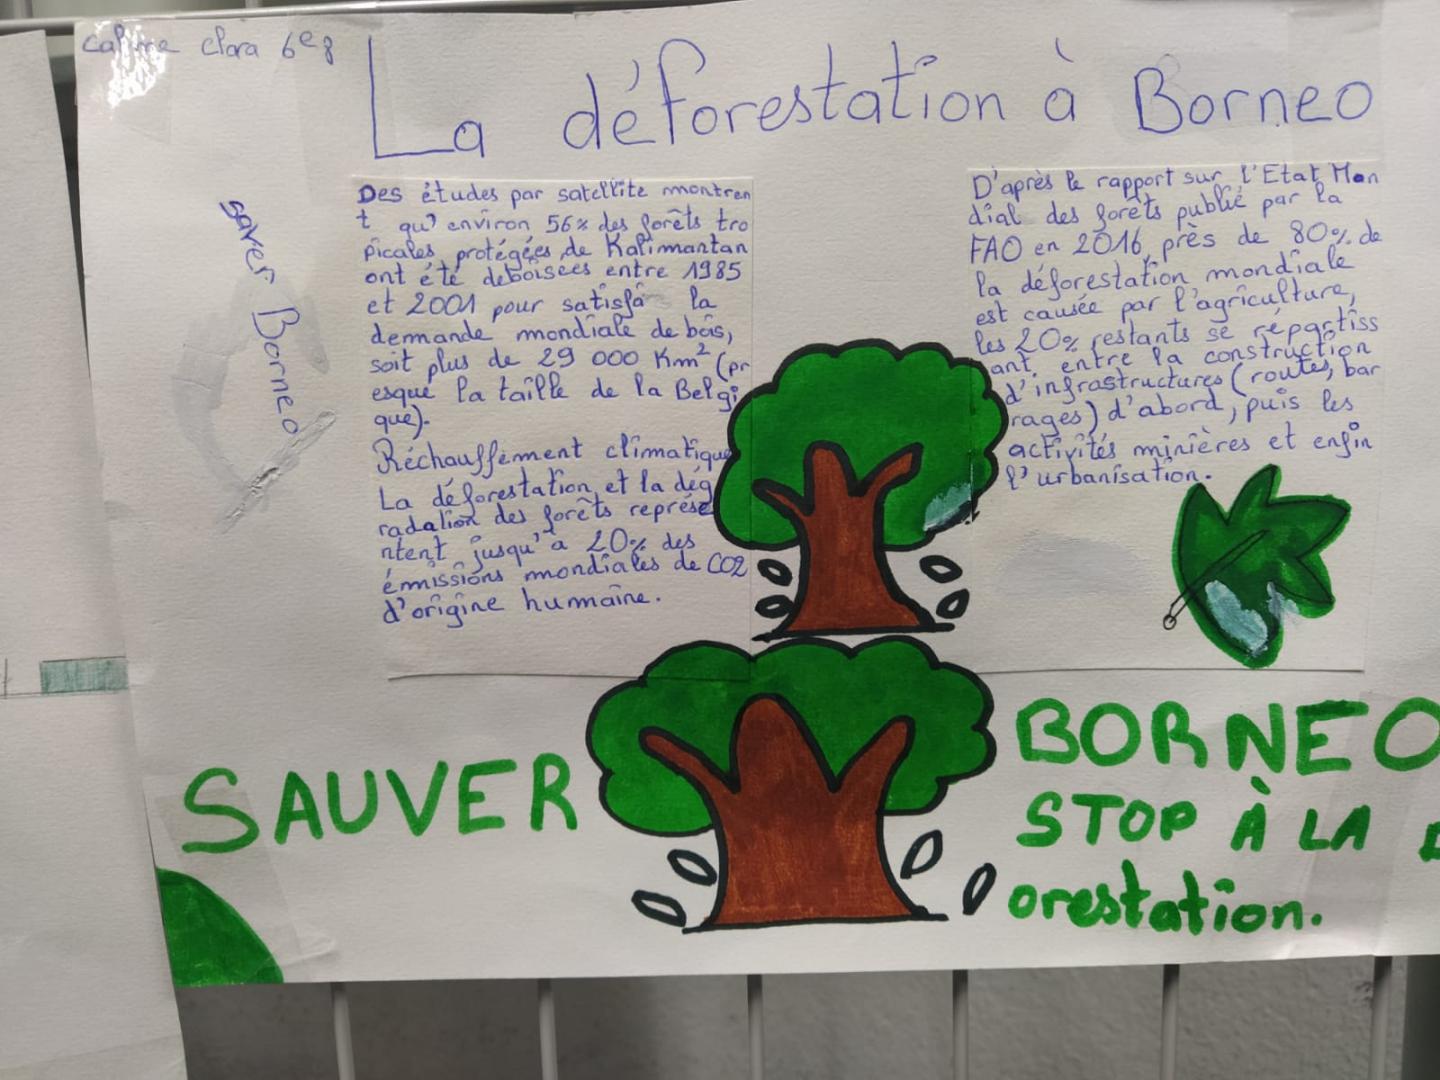 Clara 6e8
La déforestation à Borneo
saver Borneo
Des études par satellite montren
t qu'environ 56% des forêts tro
picales protégées de Kalimantan
ont été deboisées entre 1985
et 2001 pour satisfa la
demande mondiale de bois,
soit plus de 29 000 Km² (pr
esque la taille de la Belgi
que).
Réchauffement climatique
La déforestation et la dég
radation des forêts représe
ntent jusqu'à 20% des
émissions mondiales de CO2
d'origine humaine.
D'après le rapport sur l'Etat Mon
dial des forêts publié par la
FAO en 2016, près de 80% de
la déforestation mondiale
est causée par l'agriculture,
les 20% restants se répartiss
ant entre la construction
d'infrastructures (routes, bar
rages) d'abord, puis les
activités minières et enfin
l'urbanisation.
SAUVER
BORNEO
STOP À LA
orestation.